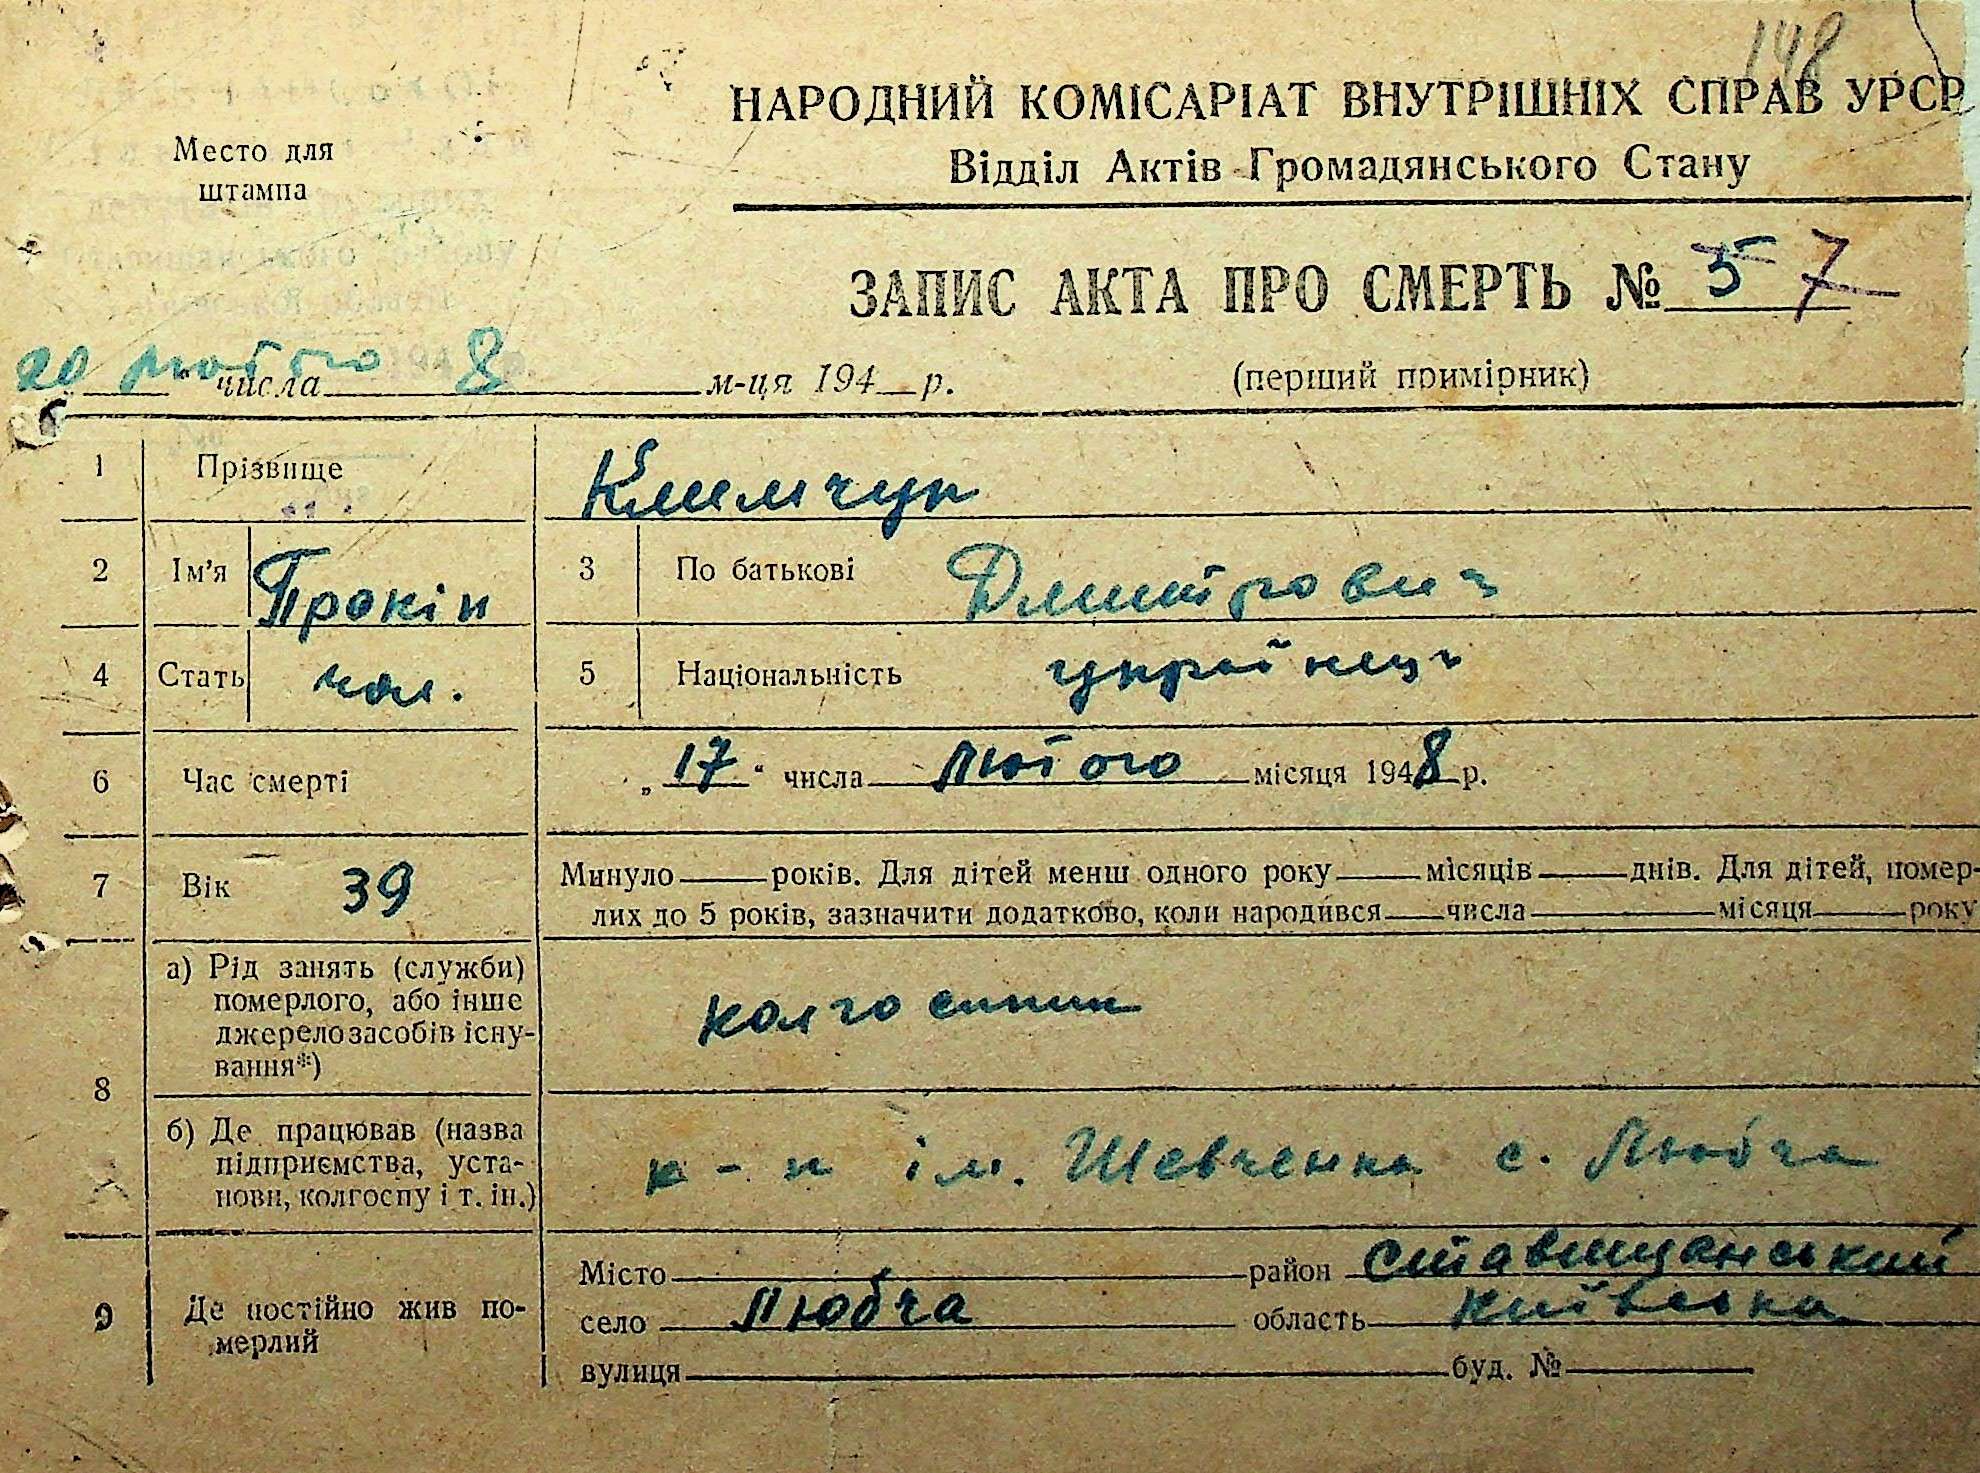 148
НАРОДНИЙ КОМІСАРІАТ ВНУТРІШНІХ СПРАВ УРСР
Відділ Актів Громадянського Стану
Место для
штампа
ЗАПИС АКТА ПРО СМЕРТЬ № 57
20 лютого 8 числа м-ця 194 р.
(перший примірник)
1 Прізвище Климчук
2 Ім'я Прокіп 3 По батькові Дмитрович
4 Стать чол. 5 Національність українець
6 Час смерті „17“ числа Лютого місяця 1948 р.
7 Вік 39 Минуло років. Для дітей менш одного року місяців днів. Для дітей, помер-
лих до 5 років, зазначити додатково, коли народився числа місяця року
8 а) Рід занять (служби)
померлого, або інше
джерело засобів існу-
вання*)
колгоспник
б) Де працював (назва
підприємства, уста-
нови, колгоспу і т. ін.)
к-п ім. Шевченка с. Любча
9 Де постійно жив по-
мерлий
Місто район Ставищанський
село Любча область Київська
вулиця буд. №